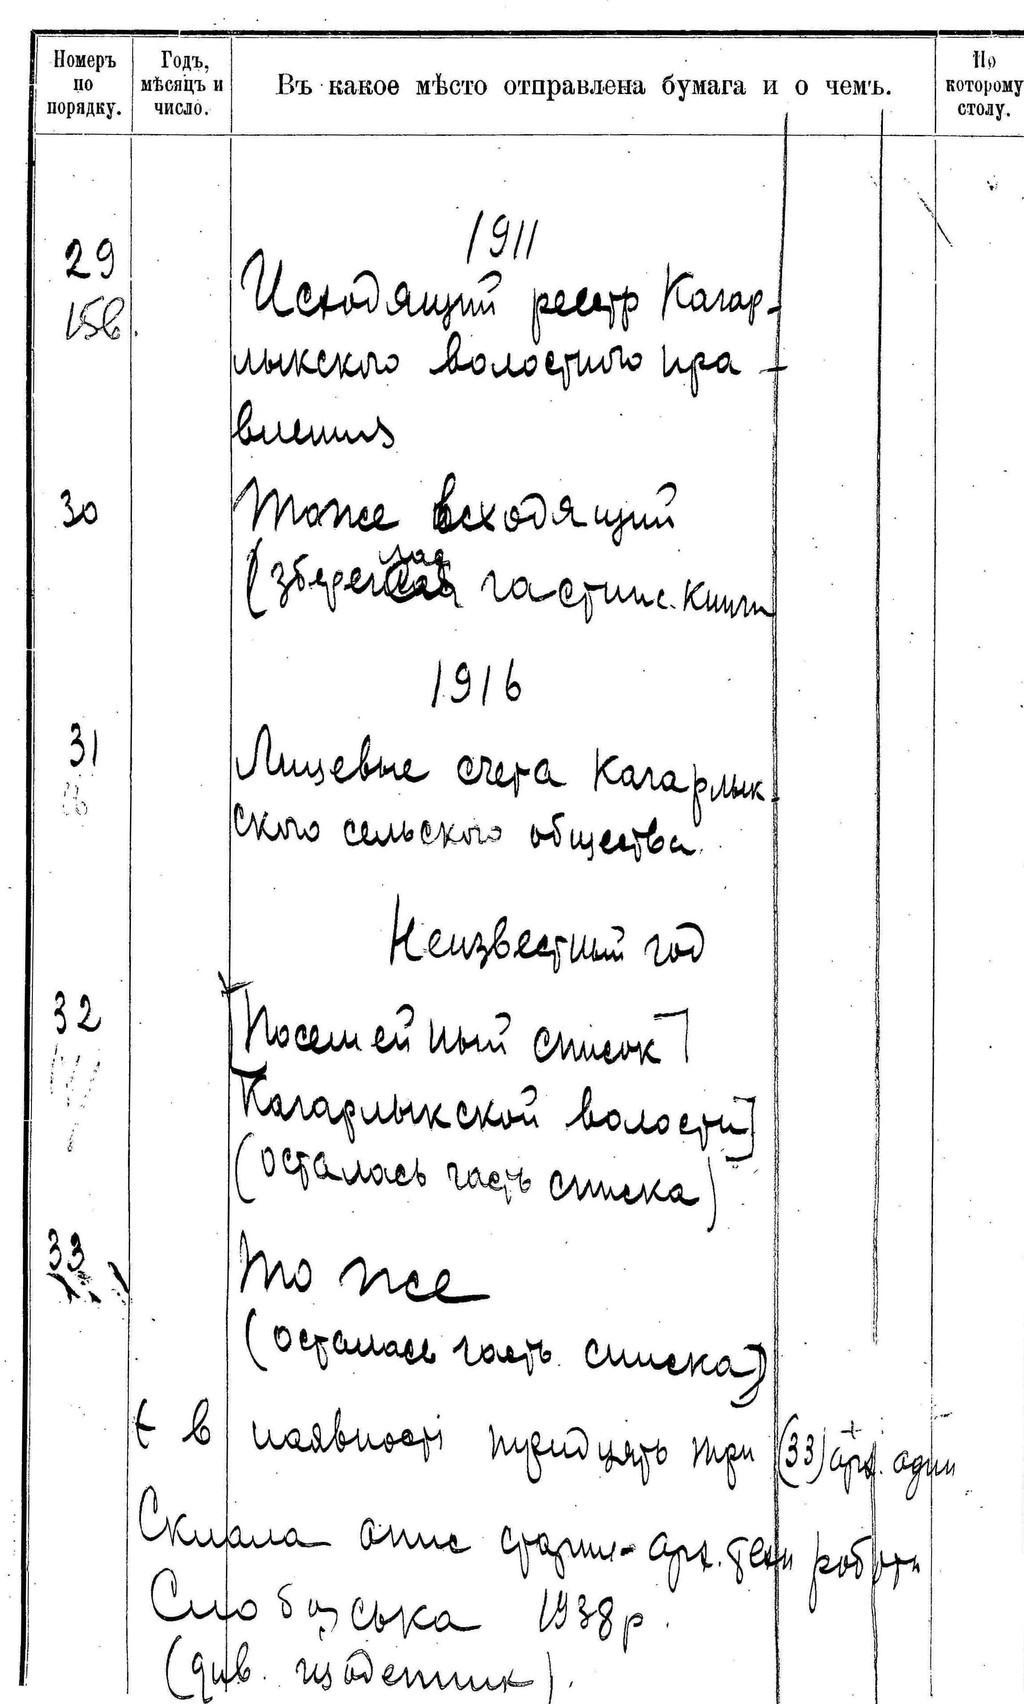 Номеръ по порядку.
Годъ, мѣсяцъ и число.
Въ какое мѣсто отправлена бумага и о чемъ.
По которому столу.
1911
29 Исходящий реестр Кагар-
лыкского волостного пра-
вления
30 Тоже всходящий
частина книги
1916
31 Лицевые счета Кагарлык-
ского сельского общества.
Неизвестный год
32 [Посемейный список
Кагарлыкской волости]
(осталась часть списка)
33 То же
(осталась часть списка)
Є в наявності тридцять три (33) арх. один
Склала опис арх. роботи
1938 р.
(див. щоденник).